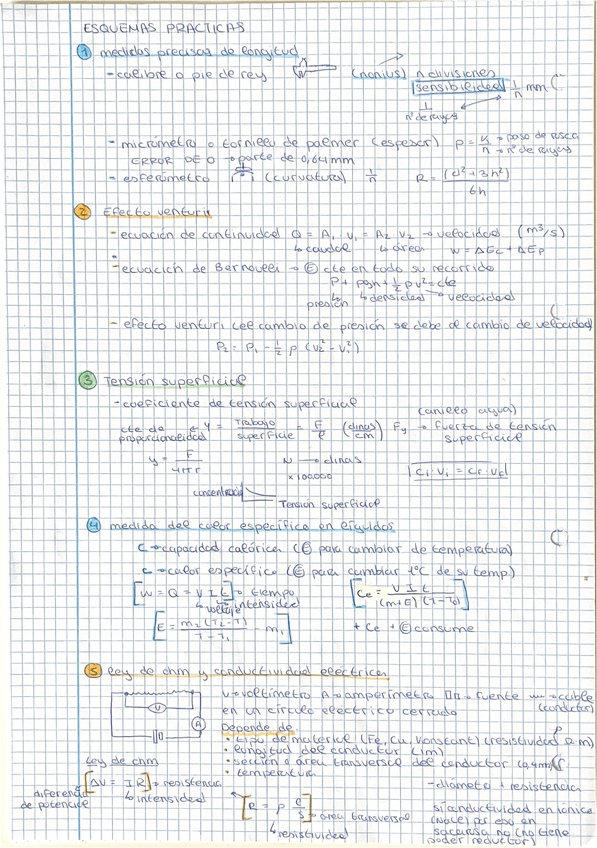 ESQUEMAS PRACTICAS
1 medidas precisas de longitud
- calibre o pie de rey (nonius) n divisiones
sensibilidad 1/n mm
1/nº de rayas
- micrómetro o tornillo de palmer (espesor) P = K/n → paso de rosca → nº de rayas
ERROR DE 0 → parte de 0,64mm
- esferímetro (curvatura) 1/n R = (d² + 3h²)/6h
2 Efecto venturi
- ecuación de continuidad Q = A₁ · V₁ = A₂ V₂ → velocidad (m³/s)
↳ caudal ↳ área W = ΔEc + ΔEp
- ecuación de Bernoulli → E cte en todo su recorrido
P + ρgh + 1/2 ρv² = cte
presión ↳ densidad velocidad
- efecto venturi (el cambio de presión se debe al cambio de velocidad)
P₂ = P₁ - 1/2 ρ (V₂² - V₁²)
3 Tensión superficial
- coeficiente de tensión superficial
(anillo agua)
cte de proporcionalidad γ = Trabajo/superficie = F/l (dinas/cm) Fγ → fuerza de tensión superficial
γ = F/4πr N → dinas
x 100.000
Ci · Vi = Cf · Vf
concentración
Tensión superficial
4 medida del calor específico en líquidos
C → capacidad calórica (E para cambiar de temperatura)
c → calor específico (E para cambiar 1ºC de su temp)
[W = Q = V I t] → tiempo
↳ intensidad
↳ voltaje
[Ce = V I t/(m+E)(T-T0)]
[E = m₂(T₂-T)/T-T₁ - m₁] + Ce + E consume
5 ley de ohm y conductividad eléctrica
V → voltímetro A → amperímetro → fuente → cable
(conductor)
en un círculo electrico cerrado
Depende de
• tipo de material (Fe, Cu, Constant) (resistividad Ω m)
• longitud del conductor (1m)
• sección o área transversal del conductor (0,4mm)
• temperatura
Ley de ohm
[ΔV = I R] → resistencia
↳ intensidad
diferencia de potencial
[R = ρ l/S] → área transversal
↳ resistividad
- diámetro + resistencia
si conductividad en iónico
(NaCl) por eso en
sacarosa no (no tiene
poder reductor)